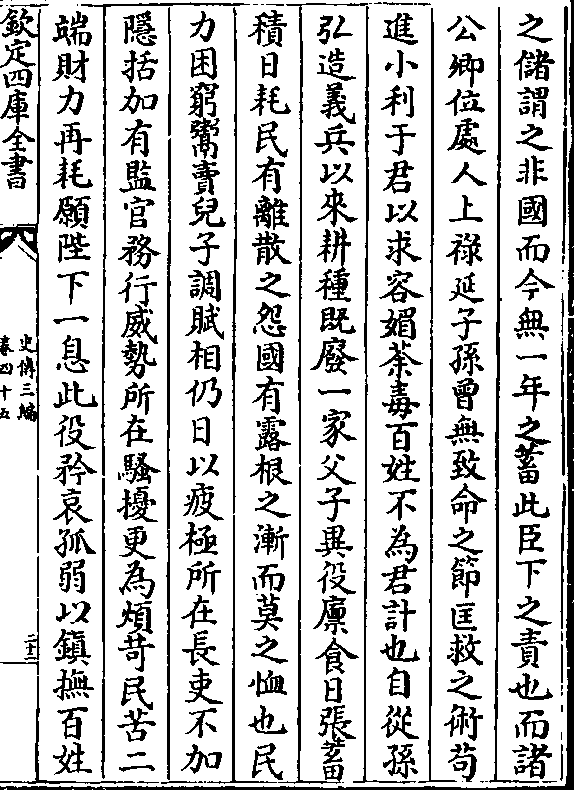 之儲謂之非國而今無一年之蓄此臣下之責也而諸
公卿位處人上祿延子孫曾無致命之節匡救之術苟
進小利于君以求容媚荼毒百姓不為君計也自從孫
弘造義兵以來耕種既廢一家父子異役廪食日張蓄
積日耗民有離散之怨國有露根之漸而莫之恤也民
力困窮鬻賣兒子調賦相仍日以疲極所在長吏不加
隱括加有監官務行威勢所在騷擾更為煩苛民苦二
端財力再耗願陛下一息此役矜哀孤弱以鎮撫百姓
欽定四庫全書
史傳三編
卷四十五